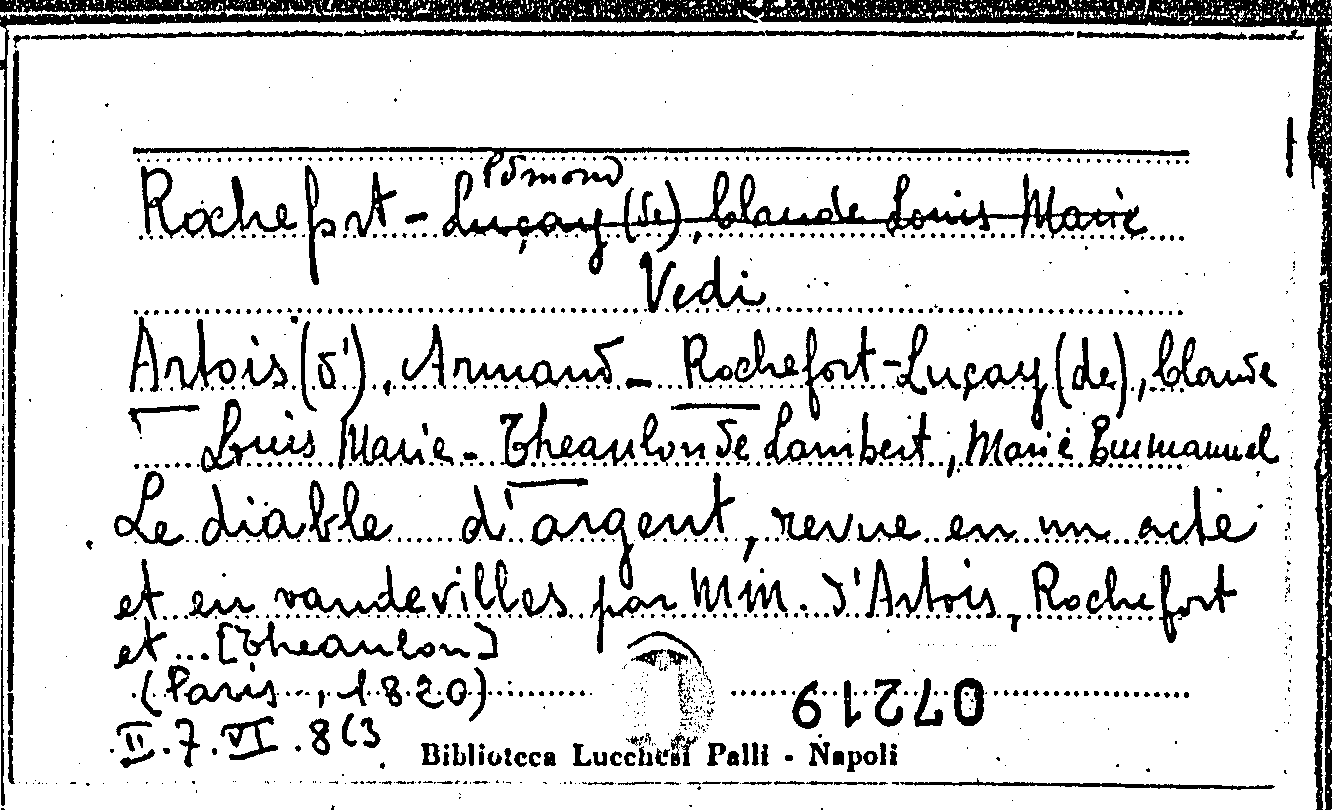 Edmond
Rochefort - Luçay (de), Claude Louis Marie
Vedi
Artois (d'), Armand - Rochefort-Luçay (de), Claude
Louis Marie - Theaulon de Lambert, Marie Emmanuel
Le diable d'argent, revue en un acte
et en vaudevilles par MM. d'Artois, Rochefort
et ... [Theaulon]
(Paris, 1820)
07219
II.7.VI.8(3
Biblioteca Lucchesi Palli - Napoli